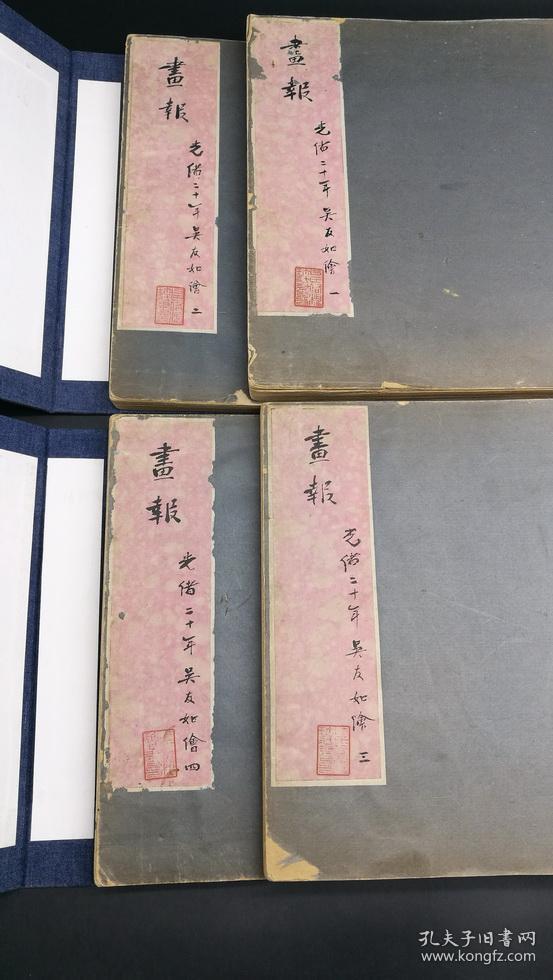 畫報
光緒二十年 吳友如繪 一
畫報
光緒二十年 吳友如繪 二
畫報
光緒二十年 吳友如繪 三
畫報
光緒二十年 吳友如繪 四
孔夫子旧书网
www.kongfz.com